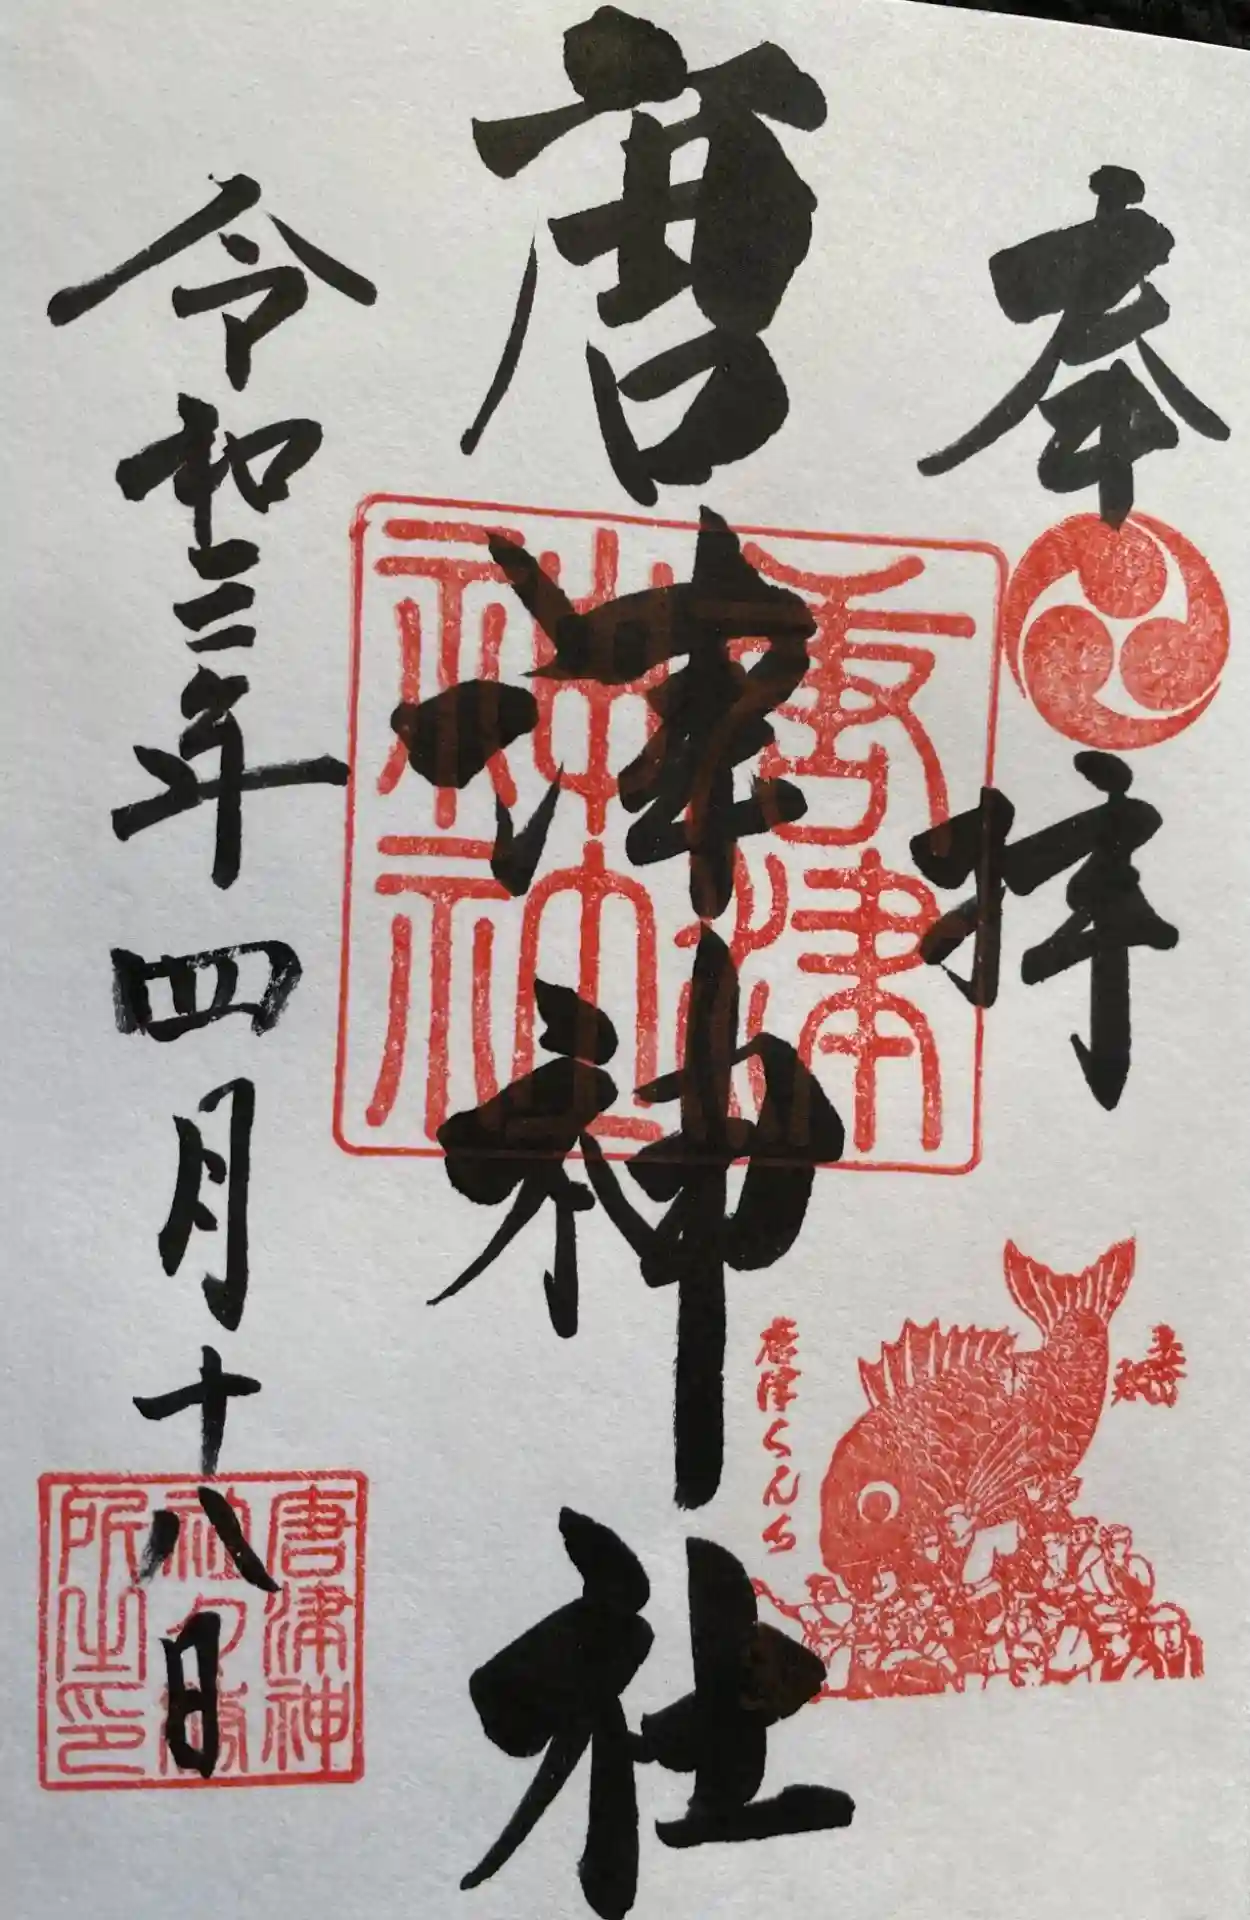 奉拝
唐津神社
令和三年四月十八日
唐津
神社
唐津くんち
唐津神
社々務
所之印